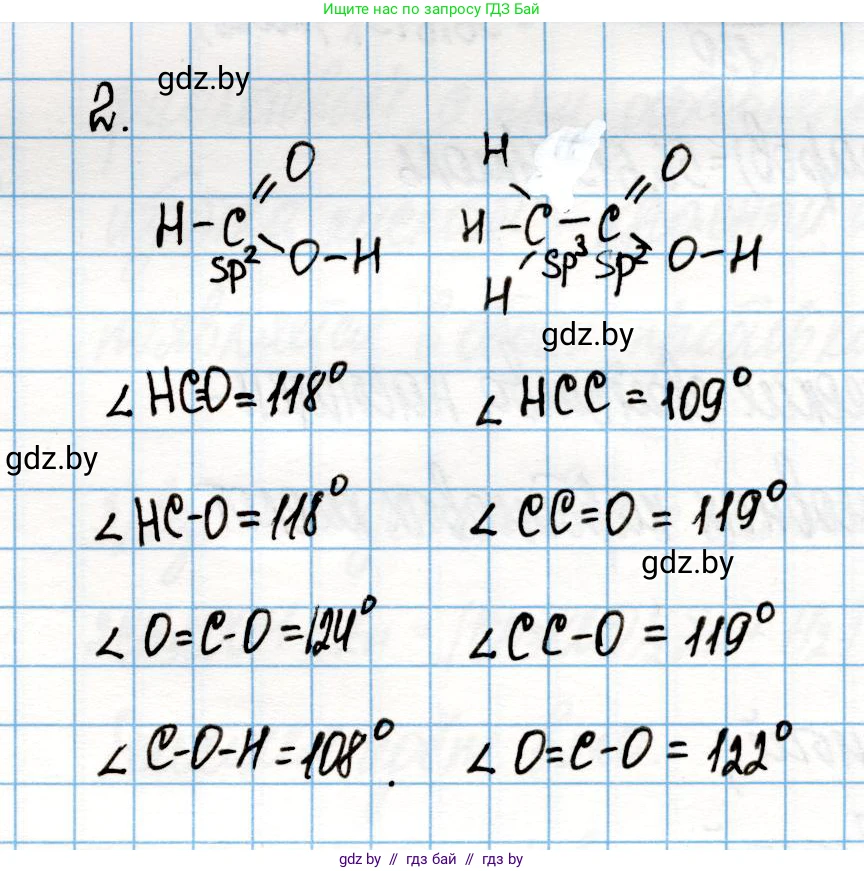 Ищите нас по запросу ГДЗ Бай
gdz.by
2.
H-C sp² =O -O-H
H H H C sp³ - C sp² =O -O-H
gdz.by
∠ HC=O = 118°
∠ HCC = 109°
gdz.by
∠ HC-O = 118°
∠ CC=O = 119°
gdz.by
∠ O=C-O = 124°
∠ CC-O = 119°
∠ C-O-H = 108°.
∠ O=C-O = 122°
gdz.by // гдз бай // гдз by